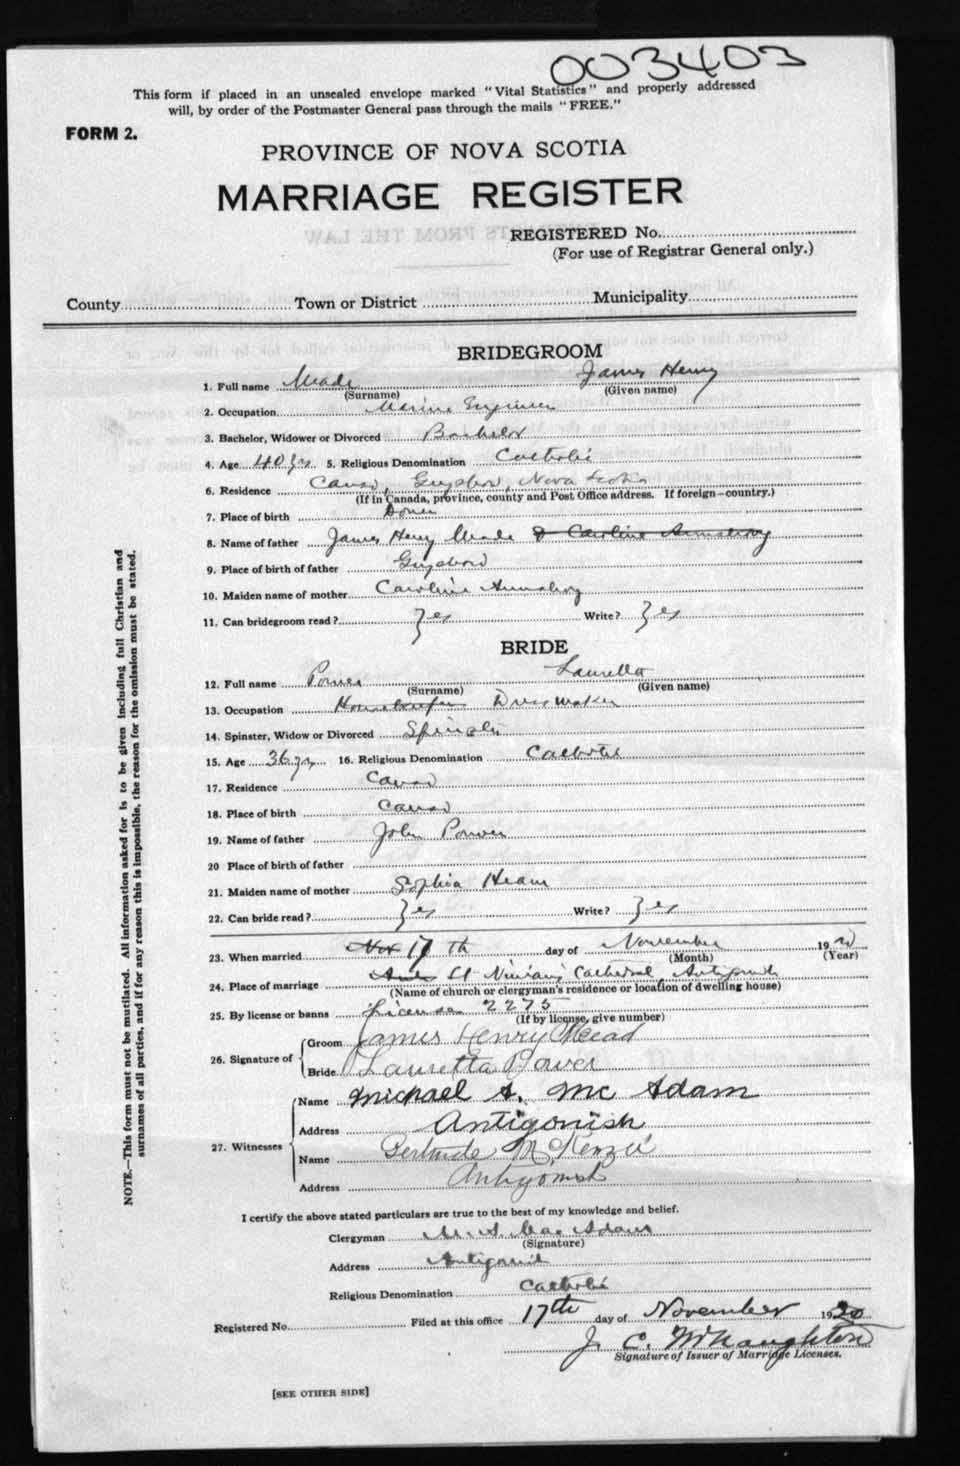 003403
This form if placed in an unsealed envelope marked "Vital Statistics" and properly addressed
will, by order of the Postmaster General pass through the mails "FREE."
FORM 2.
PROVINCE OF NOVA SCOTIA
MARRIAGE REGISTER
REGISTERED No.
(For use of Registrar General only.)
County Town or District Municipality
BRIDEGROOM
1. Full name Meade James Henry
(Surname) (Given name)
2. Occupation Marine Engineer
3. Bachelor, Widower or Divorced Bachelor
4. Age 40 yrs 5. Religious Denomination Catholic
6. Residence Canso, Guysboro, Nova Scotia
(If in Canada, province, county and Post Office address. If foreign—country.)
7. Place of birth
8. Name of father James Henry Meade & Caroline Armstrong
9. Place of birth of father Guysboro
10. Maiden name of mother Caroline Armstrong
11. Can bridegroom read? Yes Write? Yes
BRIDE
12. Full name Power Lauretta
(Surname) (Given name)
13. Occupation Housekeeper Dressmaker
14. Spinster, Widow or Divorced Spinster
15. Age 36 yrs 16. Religious Denomination Catholic
17. Residence Canso
18. Place of birth Canso
19. Name of father John Power
20 Place of birth of father
21. Maiden name of mother Sophia
22. Can bride read? Yes Write? Yes
23. When married Nov 17th day of November 1920
(Month) (Year)
24. Place of marriage St Ninian's Cathedral, Antigonish
(Name of church or clergyman's residence or location of dwelling house)
25. By license or banns License 2275
(If by license, give number)
26. Signature of Groom James Henry Mead
Bride Lauretta Power
27. Witnesses Name Michael A. McAdam
Address Antigonish
Name Gertrude McKenzie
Address Antigonish
I certify the above stated particulars are true to the best of my knowledge and belief.
Clergyman M. A. MacAdam
(Signature)
Address Antigonish
Religious Denomination Catholic
Registered No. Filed at this office 17th day of November 1920
J. C. McNaughton
Signature of Issuer of Marriage Licenses.
[SEE OTHER SIDE]
NOTE.—This form must not be mutilated. All information asked for is to be given including full Christian and
surnames of all parties, and if for any reason this is impossible, the reason for the omission must be stated.